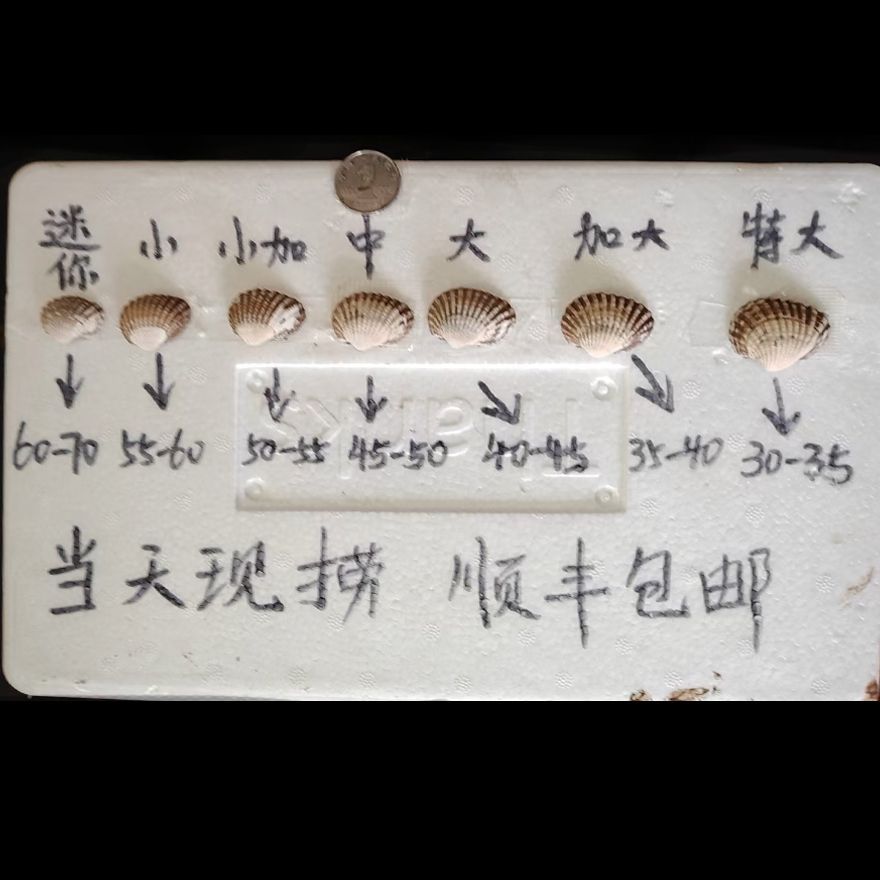 迷你 小 小加 中 大 加大 特大
60-70 55-60 50-55 45-50 40-45 35-40 30-35
当天现捞 顺丰包邮